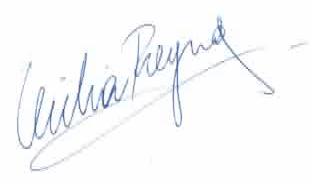 Cecilia Reyna